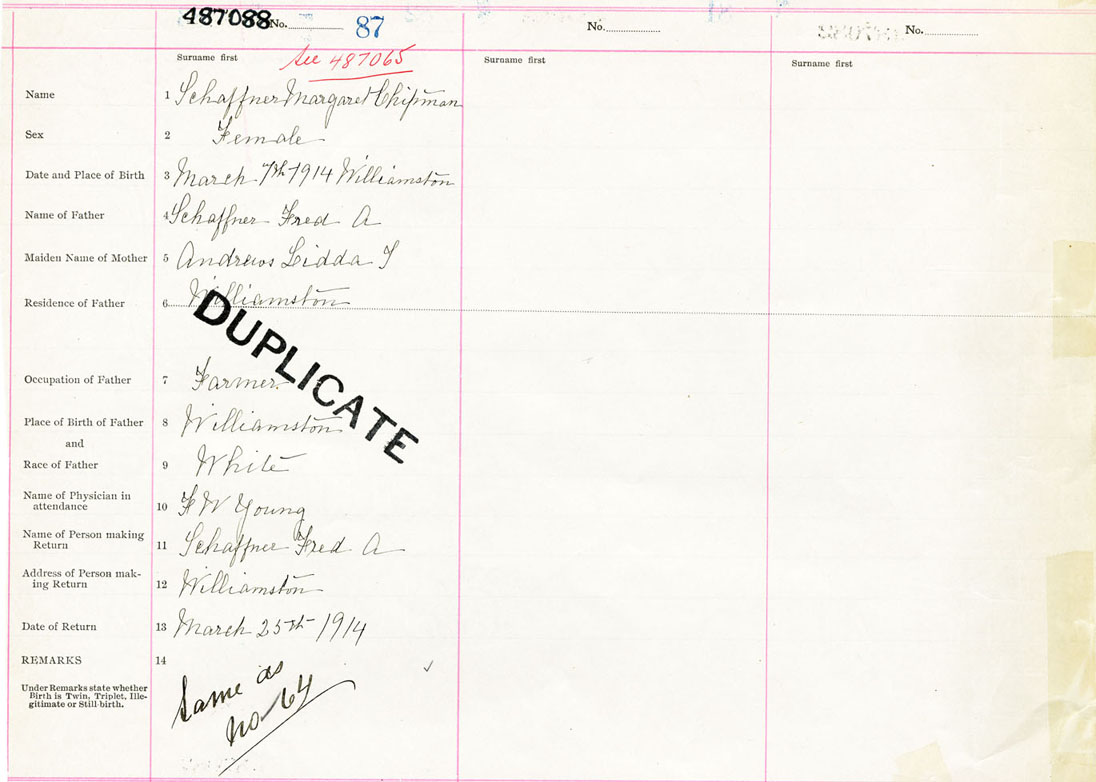 487088 No. 87
No.
No.
Surname first See 487065
Surname first
Surname first
Name 1 Schaffner Margaret Chipman
Sex 2 Female
Date and Place of Birth 3 March 7th 1914 Williamston
Name of Father 4 Schaffner Fred A
Maiden Name of Mother 5 Andrews Lidda
Residence of Father 6 Williamston
DUPLICATE
Occupation of Father 7 Farmer
Place of Birth of Father 8 Williamston
and
Race of Father 9 White
Name of Physician in
attendance 10 F W Young
Name of Person making
Return 11 Schaffner Fred A
Address of Person mak-
ing Return 12 Williamston
Date of Return 13 March 25th 1914
REMARKS 14
Under Remarks state whether
Birth is Twin, Triplet, Ille-
gitimate or Still-birth.
Same as
No 64